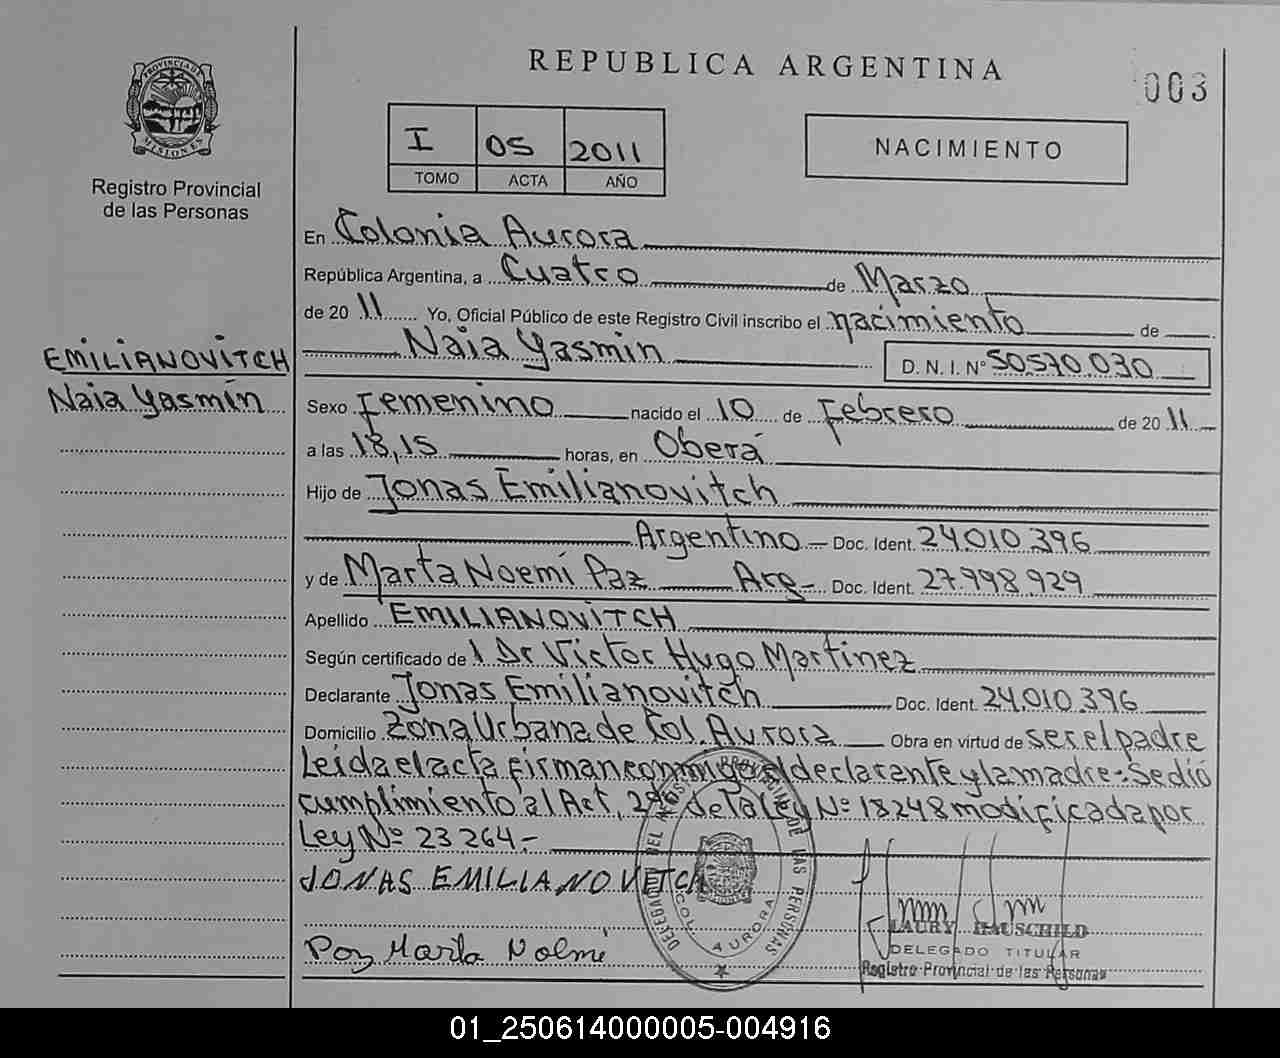 REPUBLICA ARGENTINA
003
PROVINCIA DE
MISIONES
Registro Provincial
de las Personas
I 05 2011
TOMO ACTA AÑO
NACIMIENTO
En Colonia Aurora
República Argentina, a Cuatro de Marzo
de 2011 Yo, Oficial Público de este Registro Civil inscribo el nacimiento de
EMILIANOVITCH
Naia Yasmín
Naia Yasmin D. N. I. Nº 50.570.030
Sexo Femenino nacido el 10 de Febrero de 2011
a las 18,15 horas, en Oberá
Hijo de Jonas Emilianovitch
Argentino Doc. Ident. 24.010.396
y de Marta Noemí Paz Arg- Doc. Ident. 27.998.929
Apellido EMILIANOVITCH
Según certificado de l Dr Victor Hugo Martinez
Declarante Jonas Emilianovitch Doc. Ident. 24.010.396
Domicilio Zona Urbana de Col. Aurora Obra en virtud de ser el padre
Leida el acta firman conmigo el declarante y la madre: Se dió
cumplimiento al Art. 2º de la Ley Nº 18248 modificada por
Ley Nº 23264.-
JONAS EMILIANOVETCH
Paz Marta Nolmi
COL. AURORA
LAURY HAUSCHILD
DELEGADO TITULAR
Registro Provincial de las Personas
01_250614000005-004916